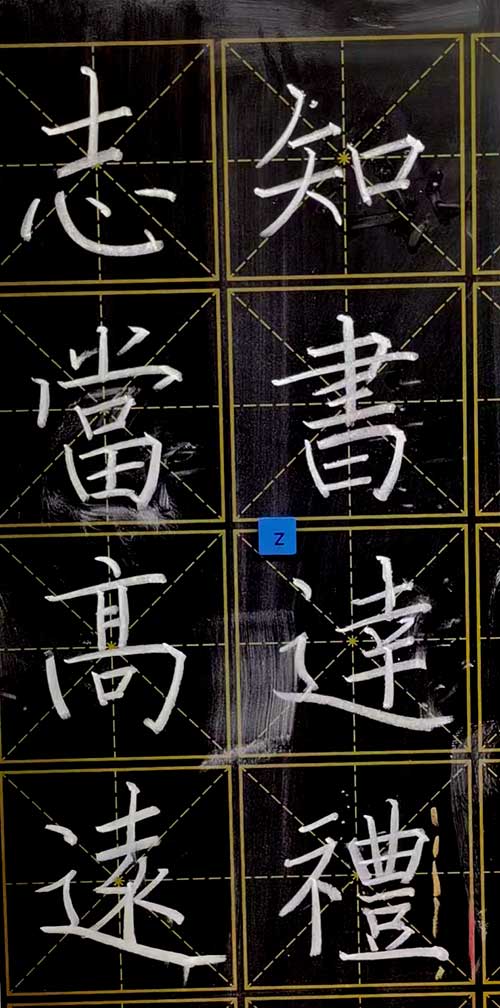 知書達禮
志當高遠
Z